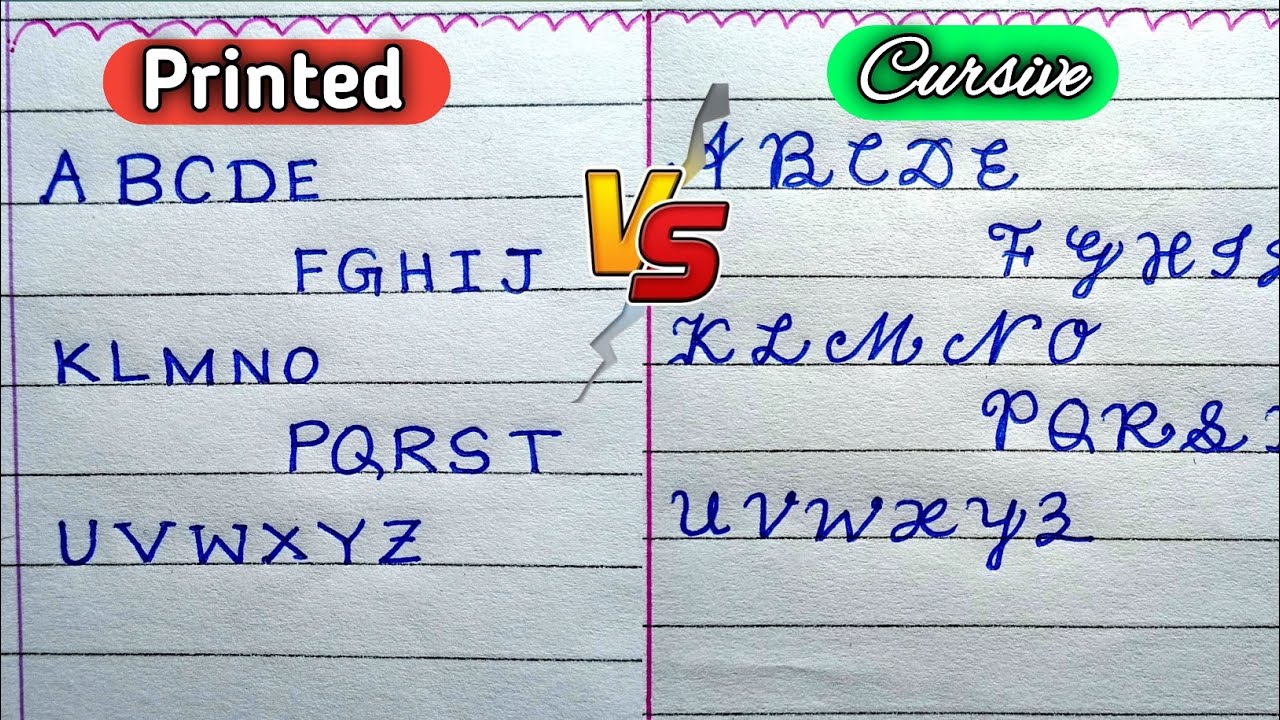 Printed
A B C D E
F G H I J
K L M N O
P Q R S T
U V W X Y Z
VS
Cursive
A B C D E
F G H I J
K L M N O
P Q R S
U V W X Y Z